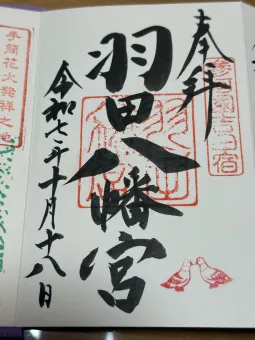 奉拝
羽田八幡宮
令和七年十月十八日
手筒花火発祥之地